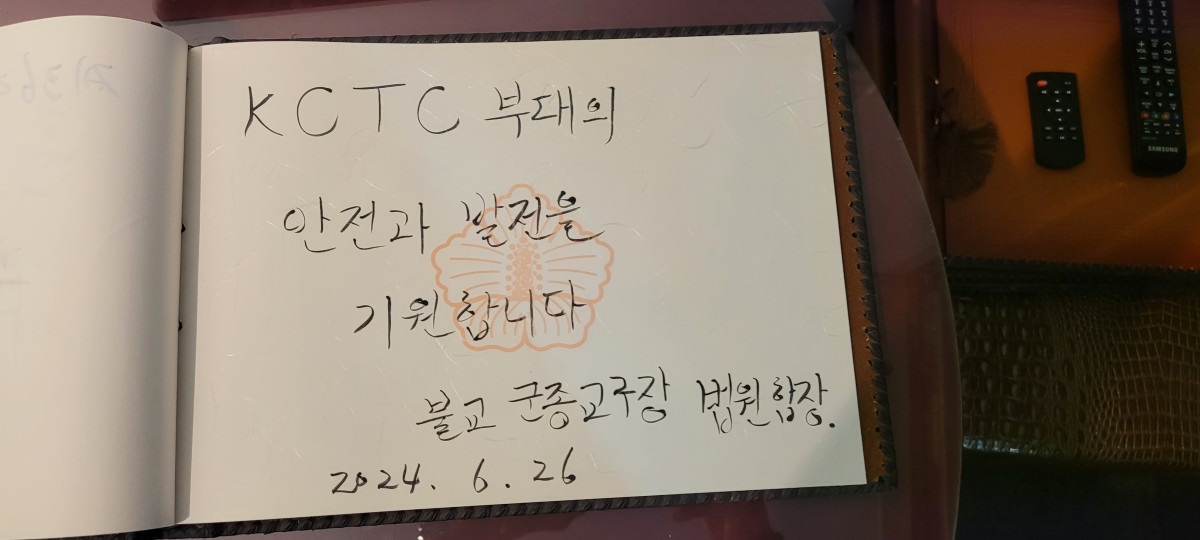 KCTC 부대의
안전과 발전을
기원합니다
불교 군종교구장 법원합장.
2024. 6. 26
SAMSUNG